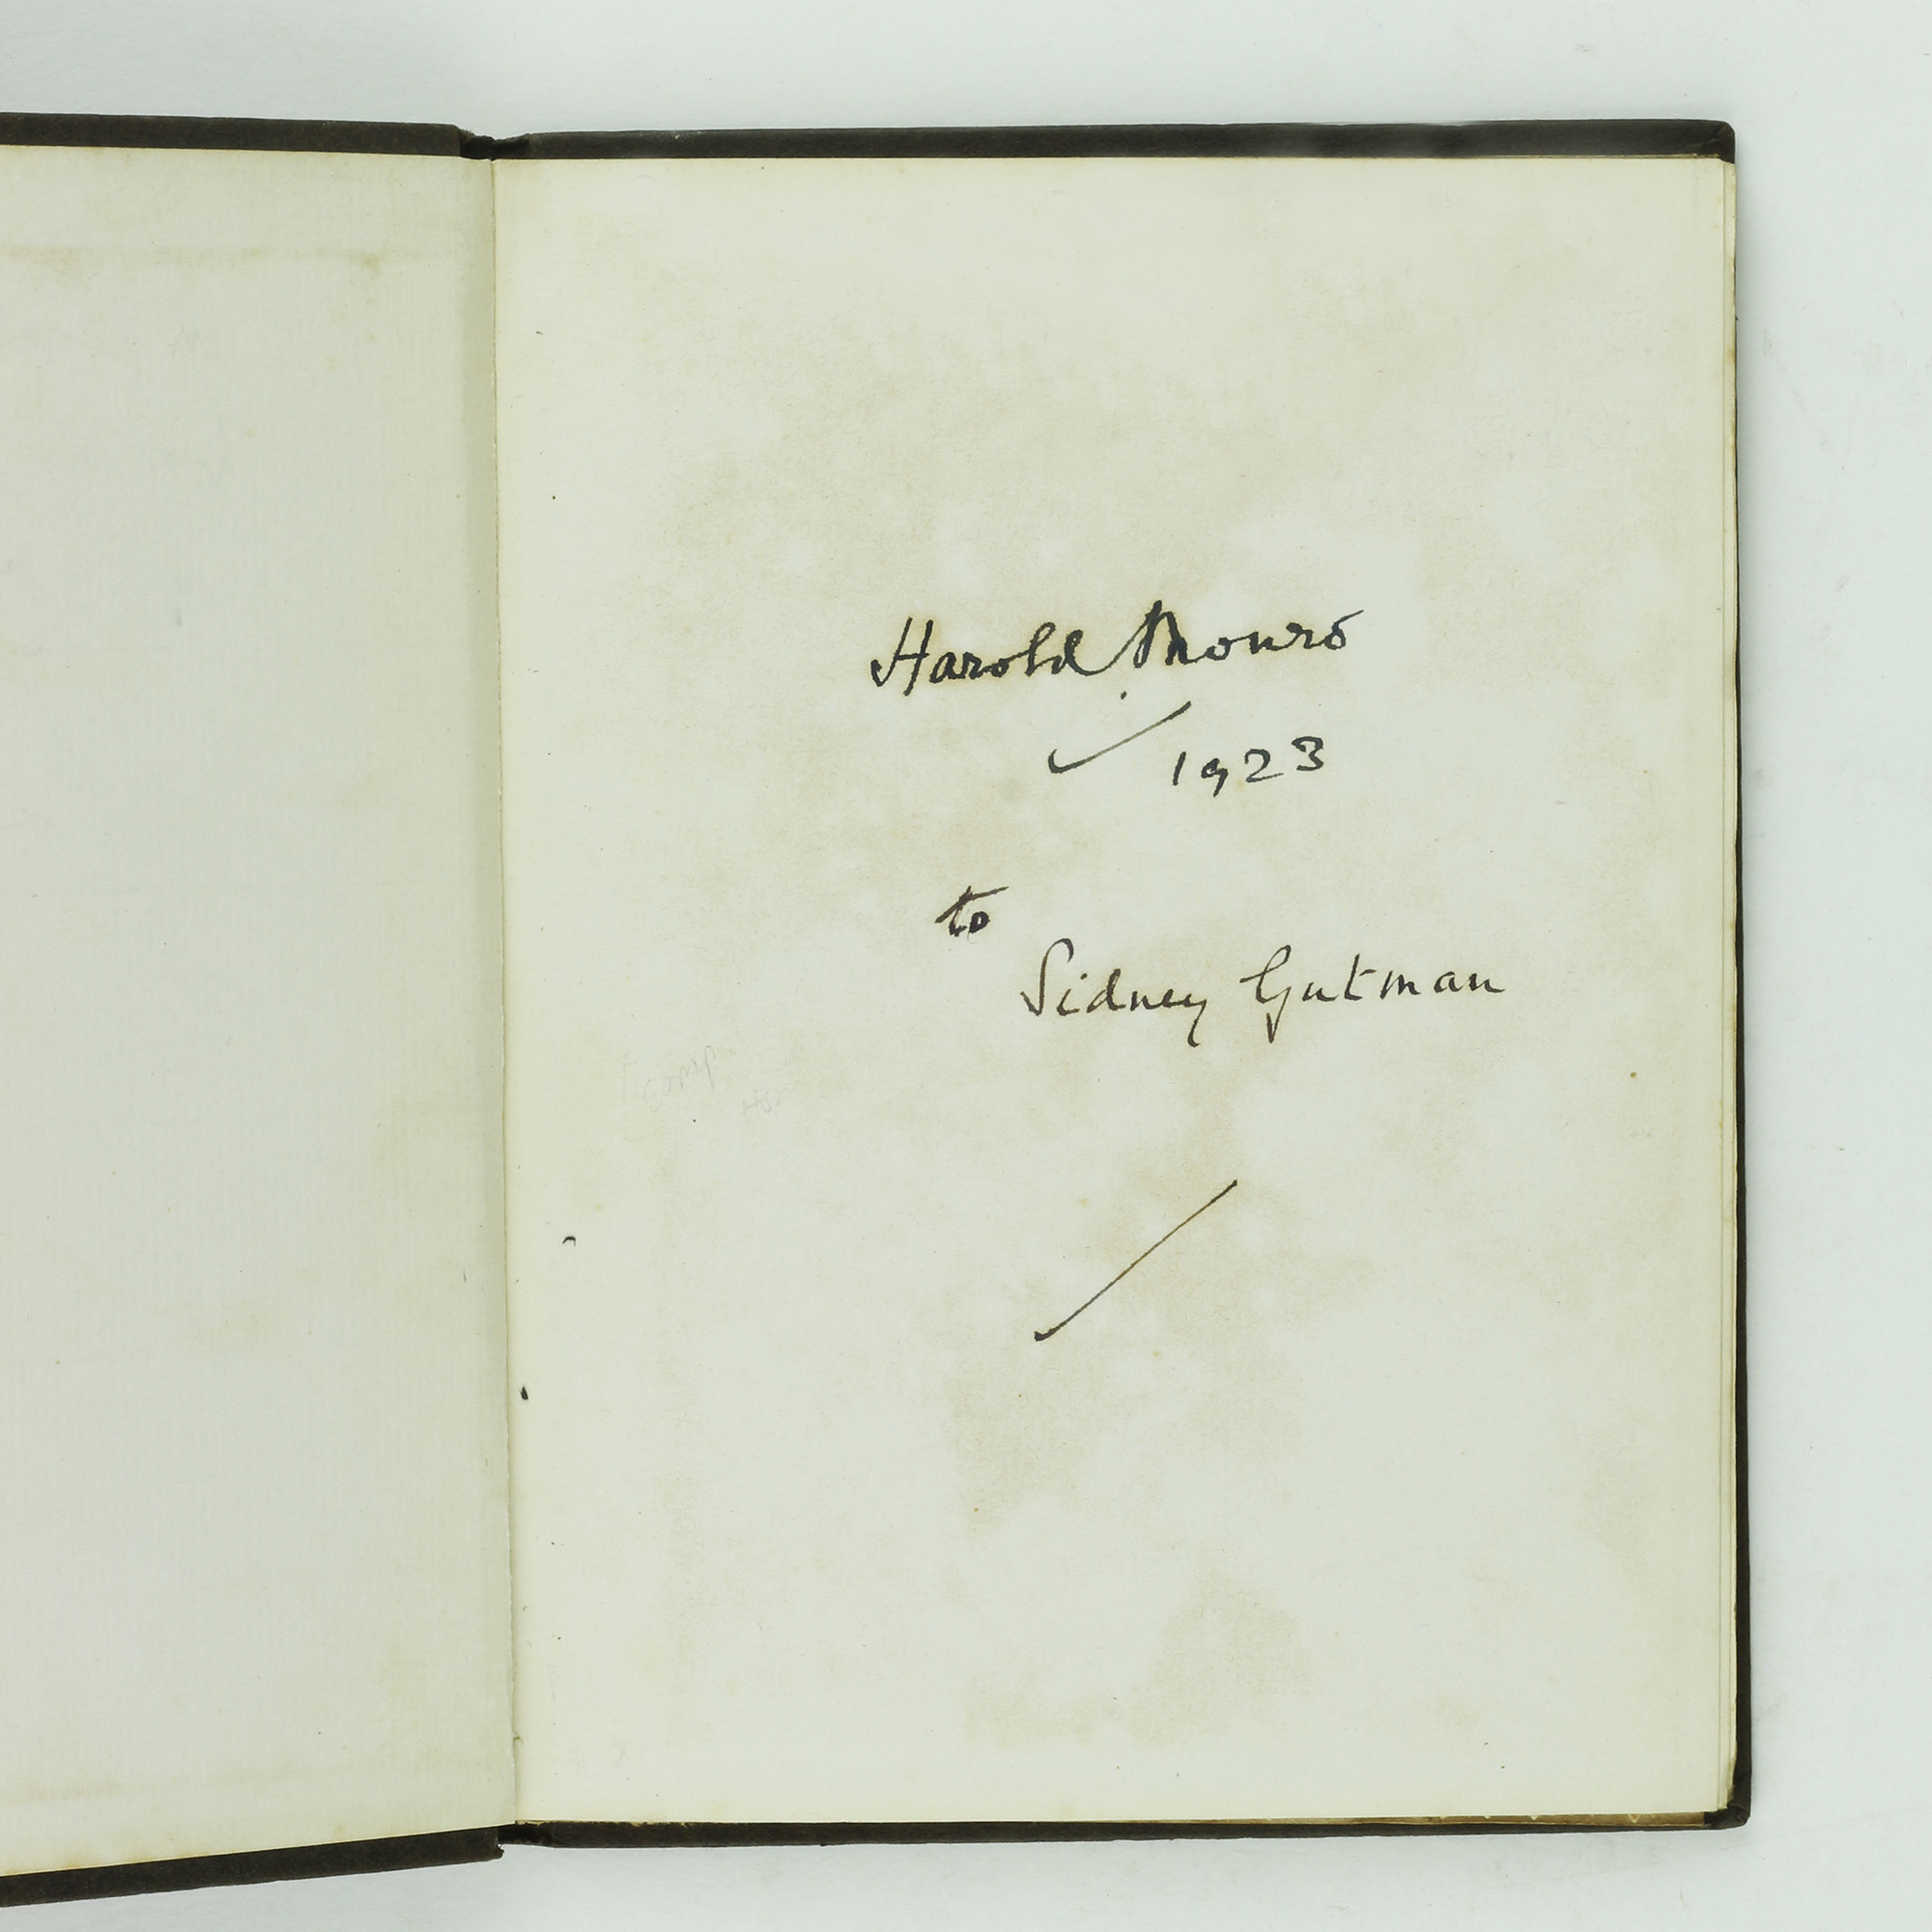 Harold Monro
1923
to
Sidney Gutman